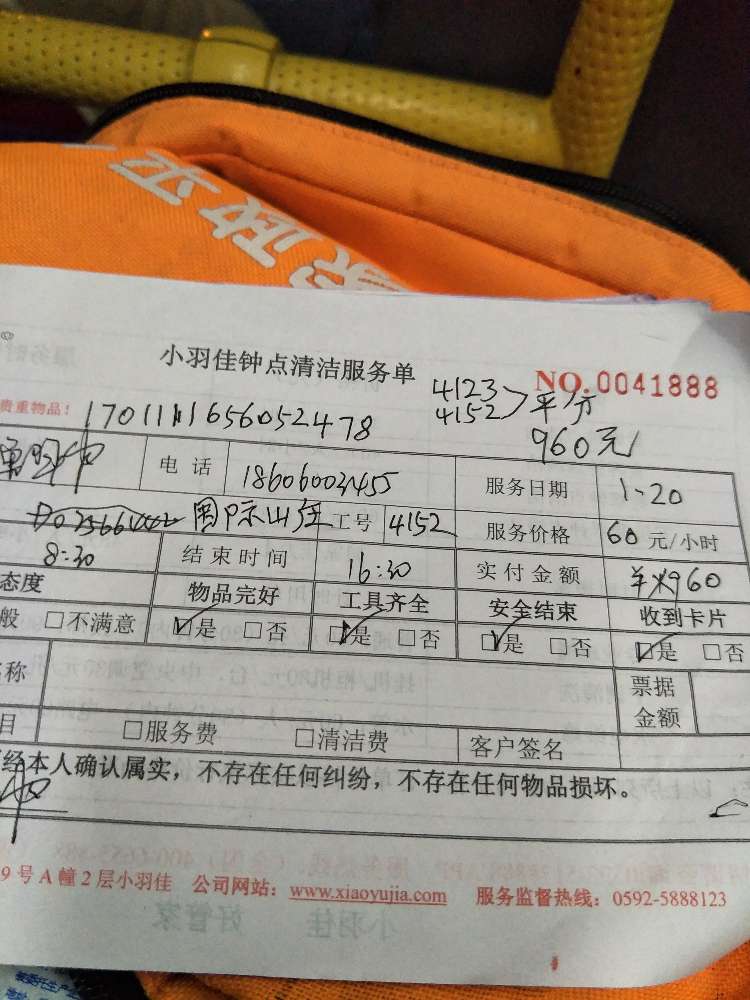 家政平
小羽佳钟点清洁服务单
NO.0041888
4123
4152 平分
960元
贵重物品！
1701111656052478
电话 18606003455 服务日期 1-20
国际山庄 工号 4152 服务价格 60元/小时
8:30 结束时间 16:30 实付金额 ¥960
态度 物品完好 工具齐全 安全结束 收到卡片
般 □不满意 ☑是 □否 ☑是 □否 ☑是 □否 ☑是 □否
名称 票据金额
目 □服务费 □清洁费 客户签名
经本人确认属实，不存在任何纠纷，不存在任何物品损坏。
9号A幢2层小羽佳 公司网站：www.xiaoyujia.com 服务监督热线：0592-5888123